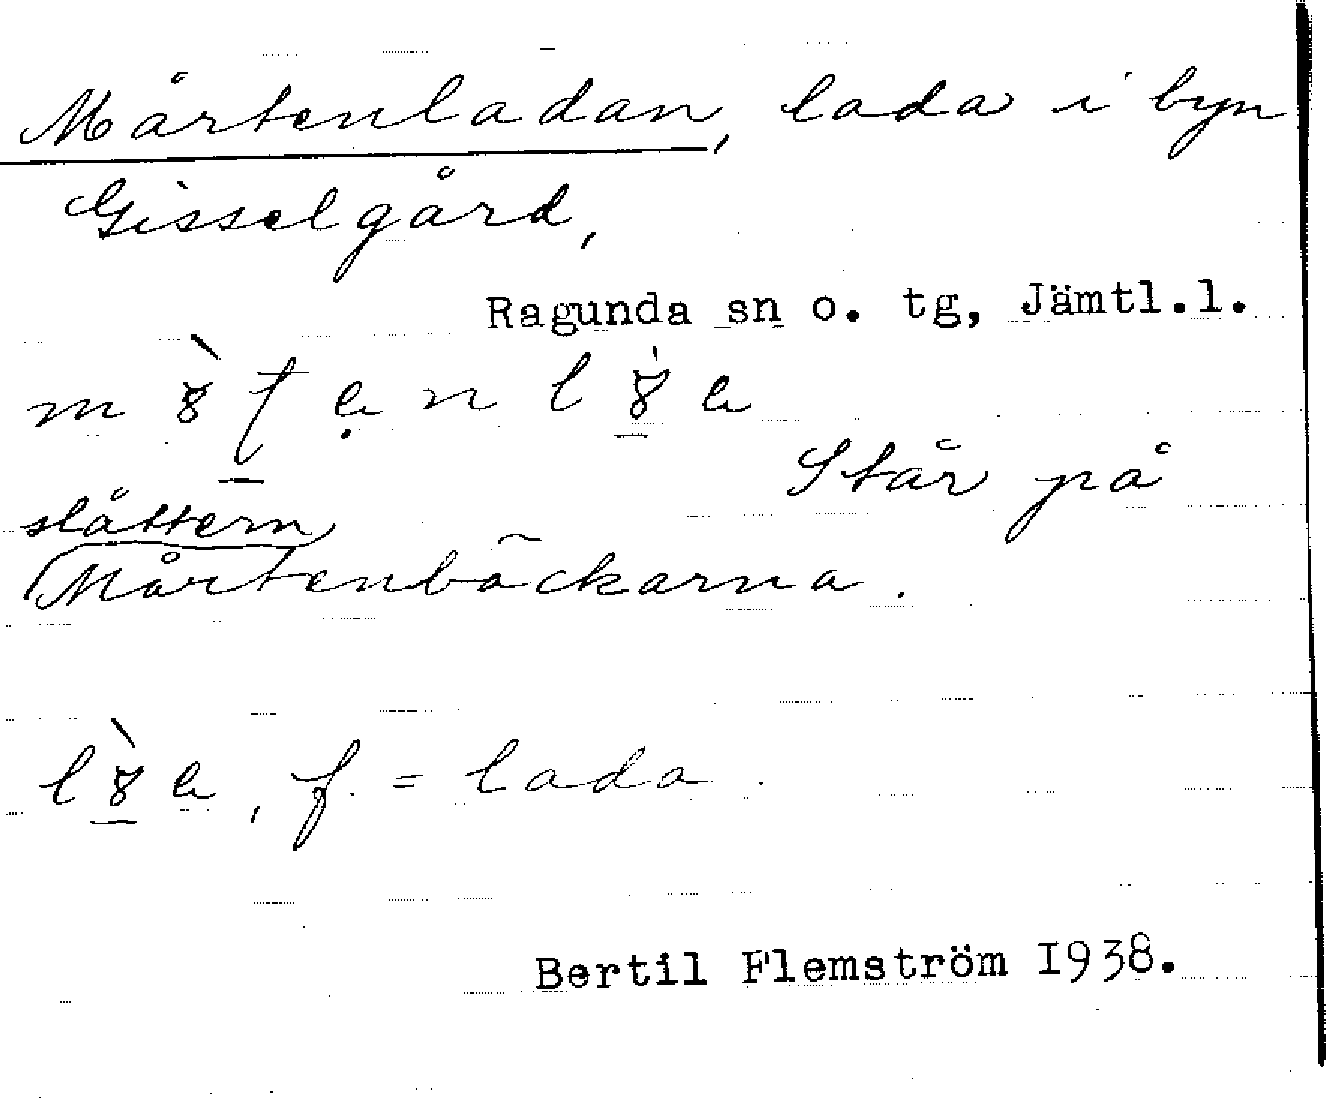 Mårtenladan, lada i byn
Gisselgård,
Ragunda sn o. tg, Jämtl.l.
Står på
slåttern
Mårtenbäckarna.
f. = lada.
Bertil Flemström 1938.